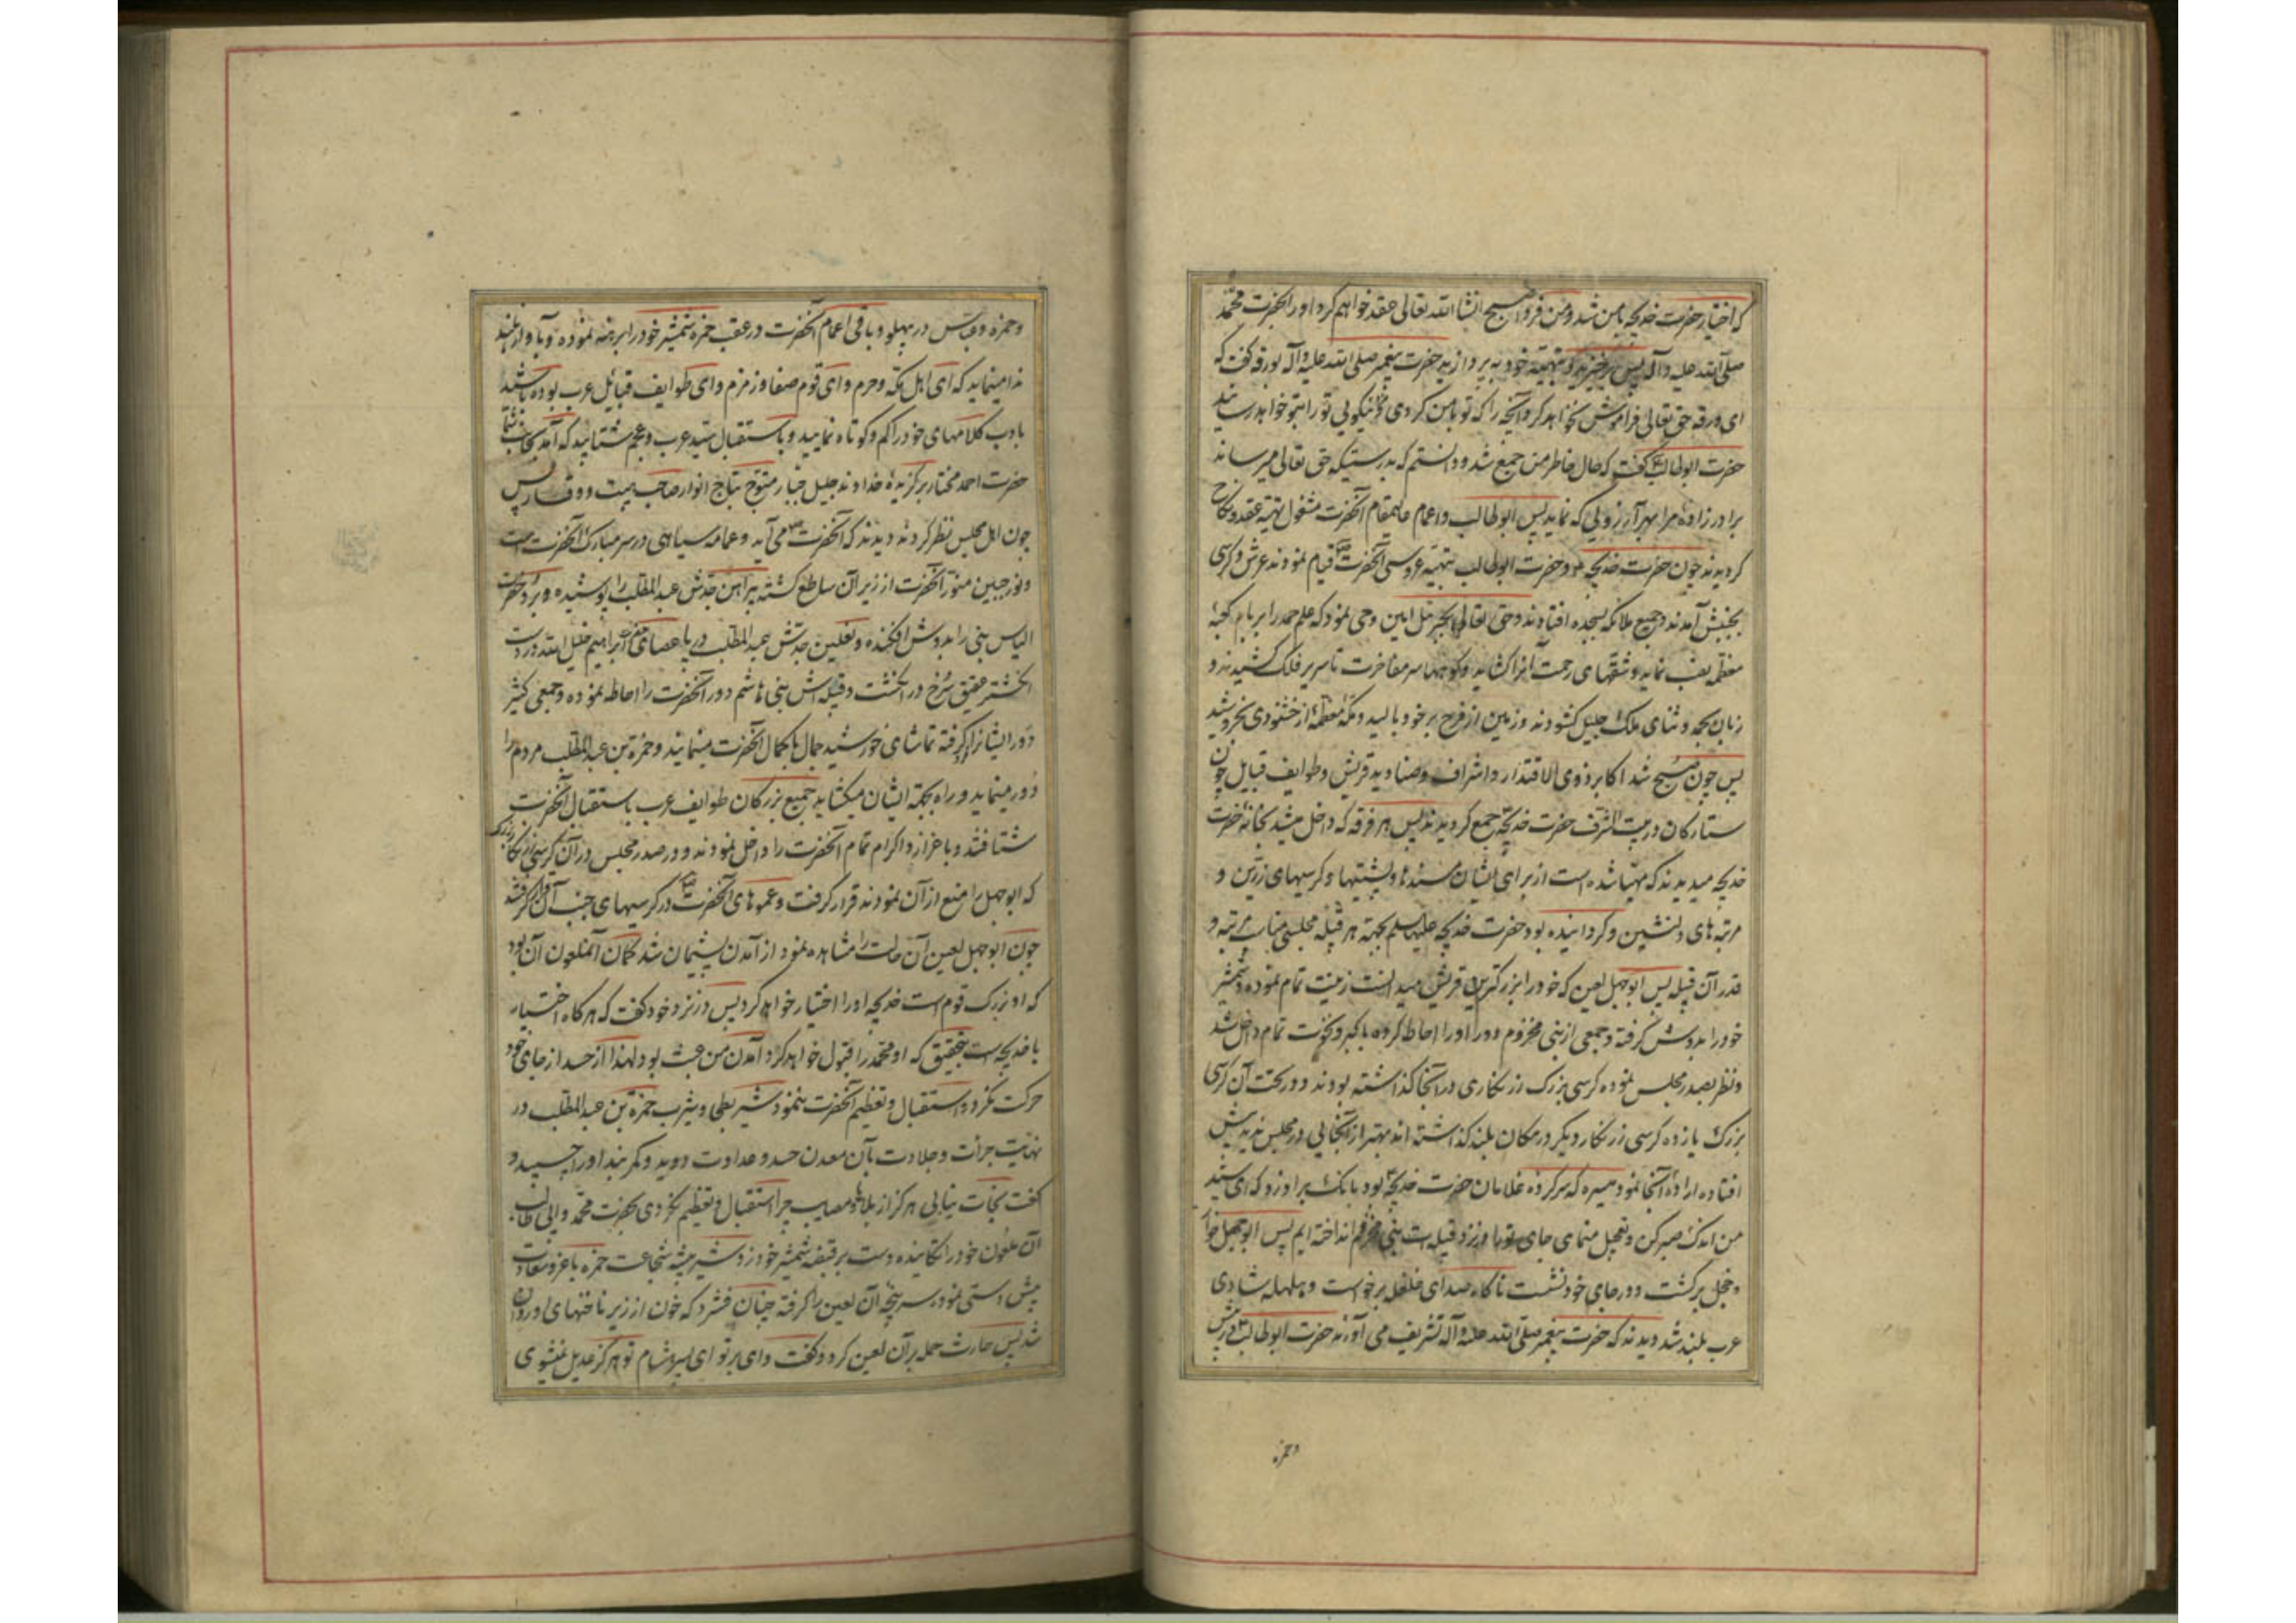 که اختیار حضرت خدیجه بامن شد و من فردا صبح انشاالله تعالی عقد خواهم کرد اورا بحضرت محمد
صلی الله علیه وآله پس برخیزید و بتهیه خود به پردازید حضرت پیغمبر صلی الله علیه وآله بورقه گفت که
ای ورقه حق تعالی فراموش نخواهد کرد آنچه را که تو بامن کردی و نیکویی تو را بتو خواهد رسانید
حضرت ابوطالب گفت که حال خاطر من جمع شد و دانستم که بدرستیکه حق تعالی میرساند
برادرزاده مرا بهر آرزویی که نماید پس ابوطالب و اعمام عالیمقام آنحضرت مشغول تهیه عقد و نکاح
کردیدند چون حضرت خدیجه و حضرت ابوطالب بتهیه عروسی آنحضرت قیام نمودند عرش و کرسی
بجنبش آمدند و جمیع ملائکه بسجده افتادند و حق تعالی بجبرئیل امین وحی نمود که علم حمد را بر بام کعبه
معظمه نصب نماید و شقهای رحمت آنرا کشاید و کوهها سر مفاخرت تا سریر فلک کشیدند و
زبان بحمد و ثنای ملک جلیل کشودند و زمین از فرح بر خود بالید و مکه معظمه از خشنودی بخروشید
پس چون صبح شد اکابر ذوی الاقتدار و اشراف و صنادید قریش و طوایف قبایل چون
ستارکان در بیت الشرف حضرت خدیجه جمع کردیدند پس هر فرقه که داخل میشد بخانه حضرت
خدیجه میدیدند که مهیا شده است از برای ایشان مسندها و پشتیها و کرسیهای زرین و
مرتبه های دلنشین و کردانیده بود حضرت خدیجه علیها سلم بجهته هر قبیله مجلسی مناسب مرتبه و
قدر آن قبیله پس ابوجهل لعین که خود را بزرکترین قریش میدانست زینت تمام نموده و شمشیر
خود را بدوش کرفته و جمعی از بنی مخزوم دور اورا احاطه کرده با کبر و نخوت تمام داخل شد
و نظر بصدر مجلس نموده کرسی بزرک زرنکاری در آنجا کذاشته بودند و در تحت آن کرسی
بزرک یازده کرسی زرنکار دیکر در مکان بلند کذاشته اند بهتر از آنجایی در مجلس ندید پیش
افتاده اراده آنجا نمود میسره که سرکرده غلامان حضرت خدیجه بود بانک بر او زد که ای سید
من اندک صبر کن و تعجیل منمای جای تو را در نزد قبیله ات بنی مخزوم انداخته ایم پس ابوجهل خوار
و خجل برکشت و در جای خود نشست ناکاه صدای غلغل برخواست و هلهله شادی
عرب بلند شد دیدند که حضرت پیغمبر صلی الله علیه وآله تشریف می آورند حضرت ابوطالب در پیش
وحمزه
وحمزه وعباس در پهلو و باقی اعمام آنحضرت در عقب حمزه شمشیر خود را برهنه نموده و بآواز بلند
ندا مینماید که ای اهل مکه و حرم و ای قوم صفا و زمزم و ای طوایف قبائل عرب بوده باشید
بادب کلامهای خود را کم و کوتاه نمایید و باستقبال سید عرب و عجم شتابید که آمد بجانب شما
حضرت احمد مختار برکزیده خداوند جلیل جبار متوج بتاج انوار صاحب هیبت و وقار پس
چون اهل مجلس نظر کردند دیدند که آنحضرت می آید و عمامه سیاهی در سر مبارک آنحضرت است
و نور جبین منور آنحضرت از زیر آن ساطع کشته پیراهن جدش عبدالمطلب را پوشیده و برد حضرت
الیاس نبی را بدوش افکنده و نعلین جدش عبدالمطلب در پا عصای ابراهیم خلیل الله در دست
انکشتر عقیق سرخ در انکشت و قبیله اش بنی هاشم دور آنحضرت را احاطه نموده و جمعی کثیر
دور ایشانرا کرفته تماشای خورشید جمال با کمال آنحضرت مینمایند و حمزة بن عبدالمطلب مردم را
دور مینماید و راه بجهته ایشان میکشاید جمیع بزرکان طوایف عرب باستقبال آنحضرت
شتافتند و با عزاز و اکرام تمام آنحضرت را داخل نمودند و در صدر مجلس در آن کرسی زرنکار بزرک
که ابوجهل را منع از آن نمودند قرار کرفت و عموهای آنحضرت در کرسیهای جنب آن قرار کرفتند
چون ابوجهل لعین آن حالت را مشاهده نمود از آمدن پشیمان شد کمان آنملعون آن بود
که او بزرک قوم است خدیجه اورا اختیار خواهد کرد پس در نزد خود کفت که هرکاه اختیار
با خدیجه است بتحقیق که او محمد را قبول خواهد کرد آمدن من عبث بود لهذا از حسد از جای خود
حرکت نکرد و استقبال و تعظیم آنحضرت ننمود شیر بطحی و یثرب حمزة بن عبدالمطلب در
نهایت جرأت و جلادت بآن معدن حسد و عداوت دوید و کمربند اورا چسبید و
کفت نجات نیابی هرکز از بلاها و مصایب چرا استقبال و تعظیم نکردی بحضرت محمد و ابی طالب
آن ملعون خود را تکانیده دست بر قبضه شمشیر خود زد شیر بیشه شجاعت حمزه با عز و سعادت
پیش دستی نمود سرپنجه آن لعین را کرفته چنان فشرد که خون از زیر ناخنهای او روان
شد پس حارث حمله بر آن لعین کرد و کفت وای بر تو ای پسر هشام تو هرکز عدیل نمیشوی